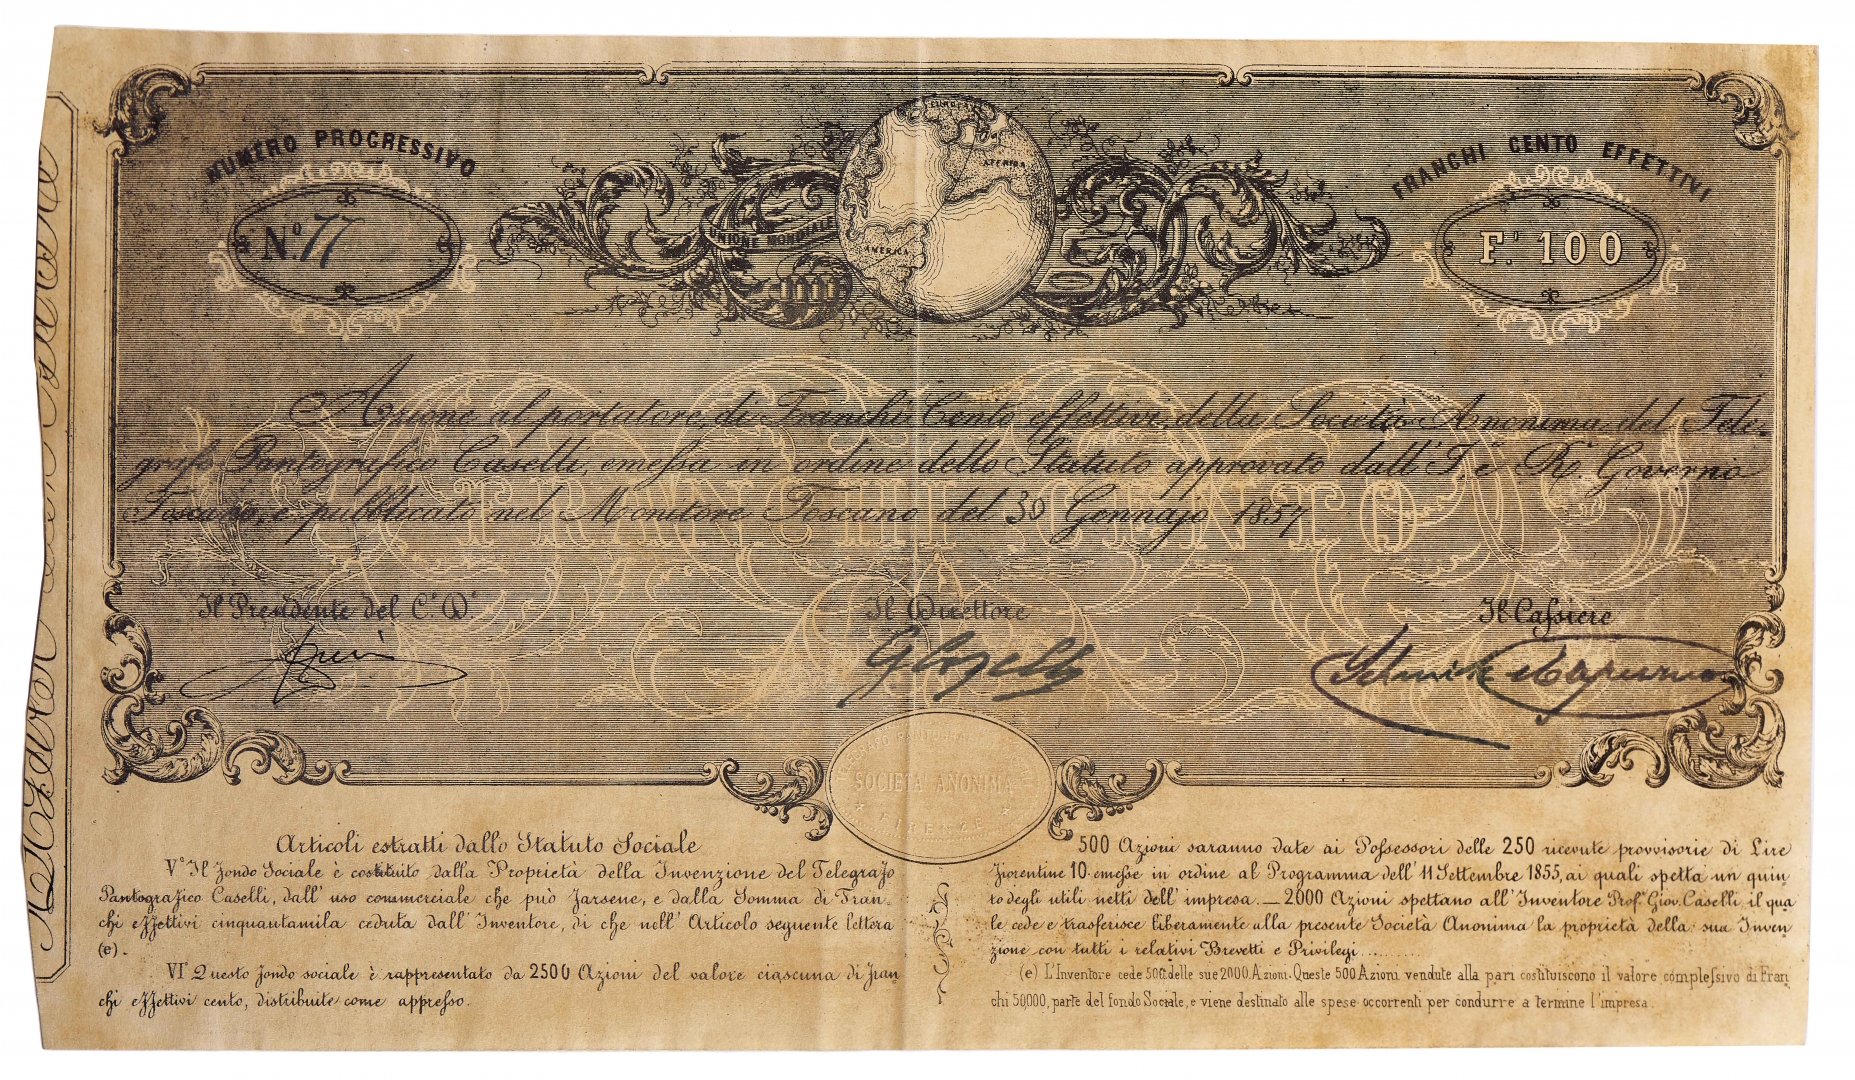 NUMERO PROGRESSIVO
N.º 77
EUROPA
AFFRICA
AMERICA
UNIONE MONDIALE
FRANCHI CENTO EFFETTIVI
F.i 100
Azione al portatore, di Franchi Cento effettivi, della Società Anonima del Tele-
grafo Pantografico Caselli, emessa in ordine dello Statuto approvato dall' I. e R. Governo
Toscano, e pubblicato nel Monitore Toscano del 30 Gennajo 1857
FRANCHI CENTO
Il Presidente del C. D.
Il Direttore
Il Cassiere
G Caselli
SOCIETÀ ANONIMA
FIRENZE
Articoli estratti dallo Statuto Sociale
V.º Il fondo Sociale è costituito dalla Proprietà della Invenzione del Telegrafo
Pantografico Caselli, dall' uso commerciale che può farsene, e dalla Somma di Fran-
chi effettivi cinquantamila ceduta dall' Inventore, di che nell' Articolo seguente lettera
(e).
VIº Questo fondo sociale è rappresentato da 2500 Azioni del valore ciascuna di fran
chi effettivi cento, distribuite come appresso.
500 Azioni saranno date ai Possessori delle 250 ricevute provvisorie di Lire
fiorentine 10. emesse in ordine al Programma dell' 11 Settembre 1855, ai quali spetta un quin
to degli utili netti dell' impresa. — 2000 Azioni spettano all' Inventore Prof. Giov. Caselli, il qua
le cede e trasferisce liberamente alla presente Società Anonima la proprietà della sua Inven
zione con tutti i relativi Brevetti e Privilegi..........
(e) L'Inventore cede 500 delle sue 2000 Azioni. Queste 500 Azioni vendute alla pari costituiscono il valore complessivo di Fran
chi 50,000, parte del fondo Sociale, e viene destinato alle spese occorrenti per condurre a termine l'impresa.